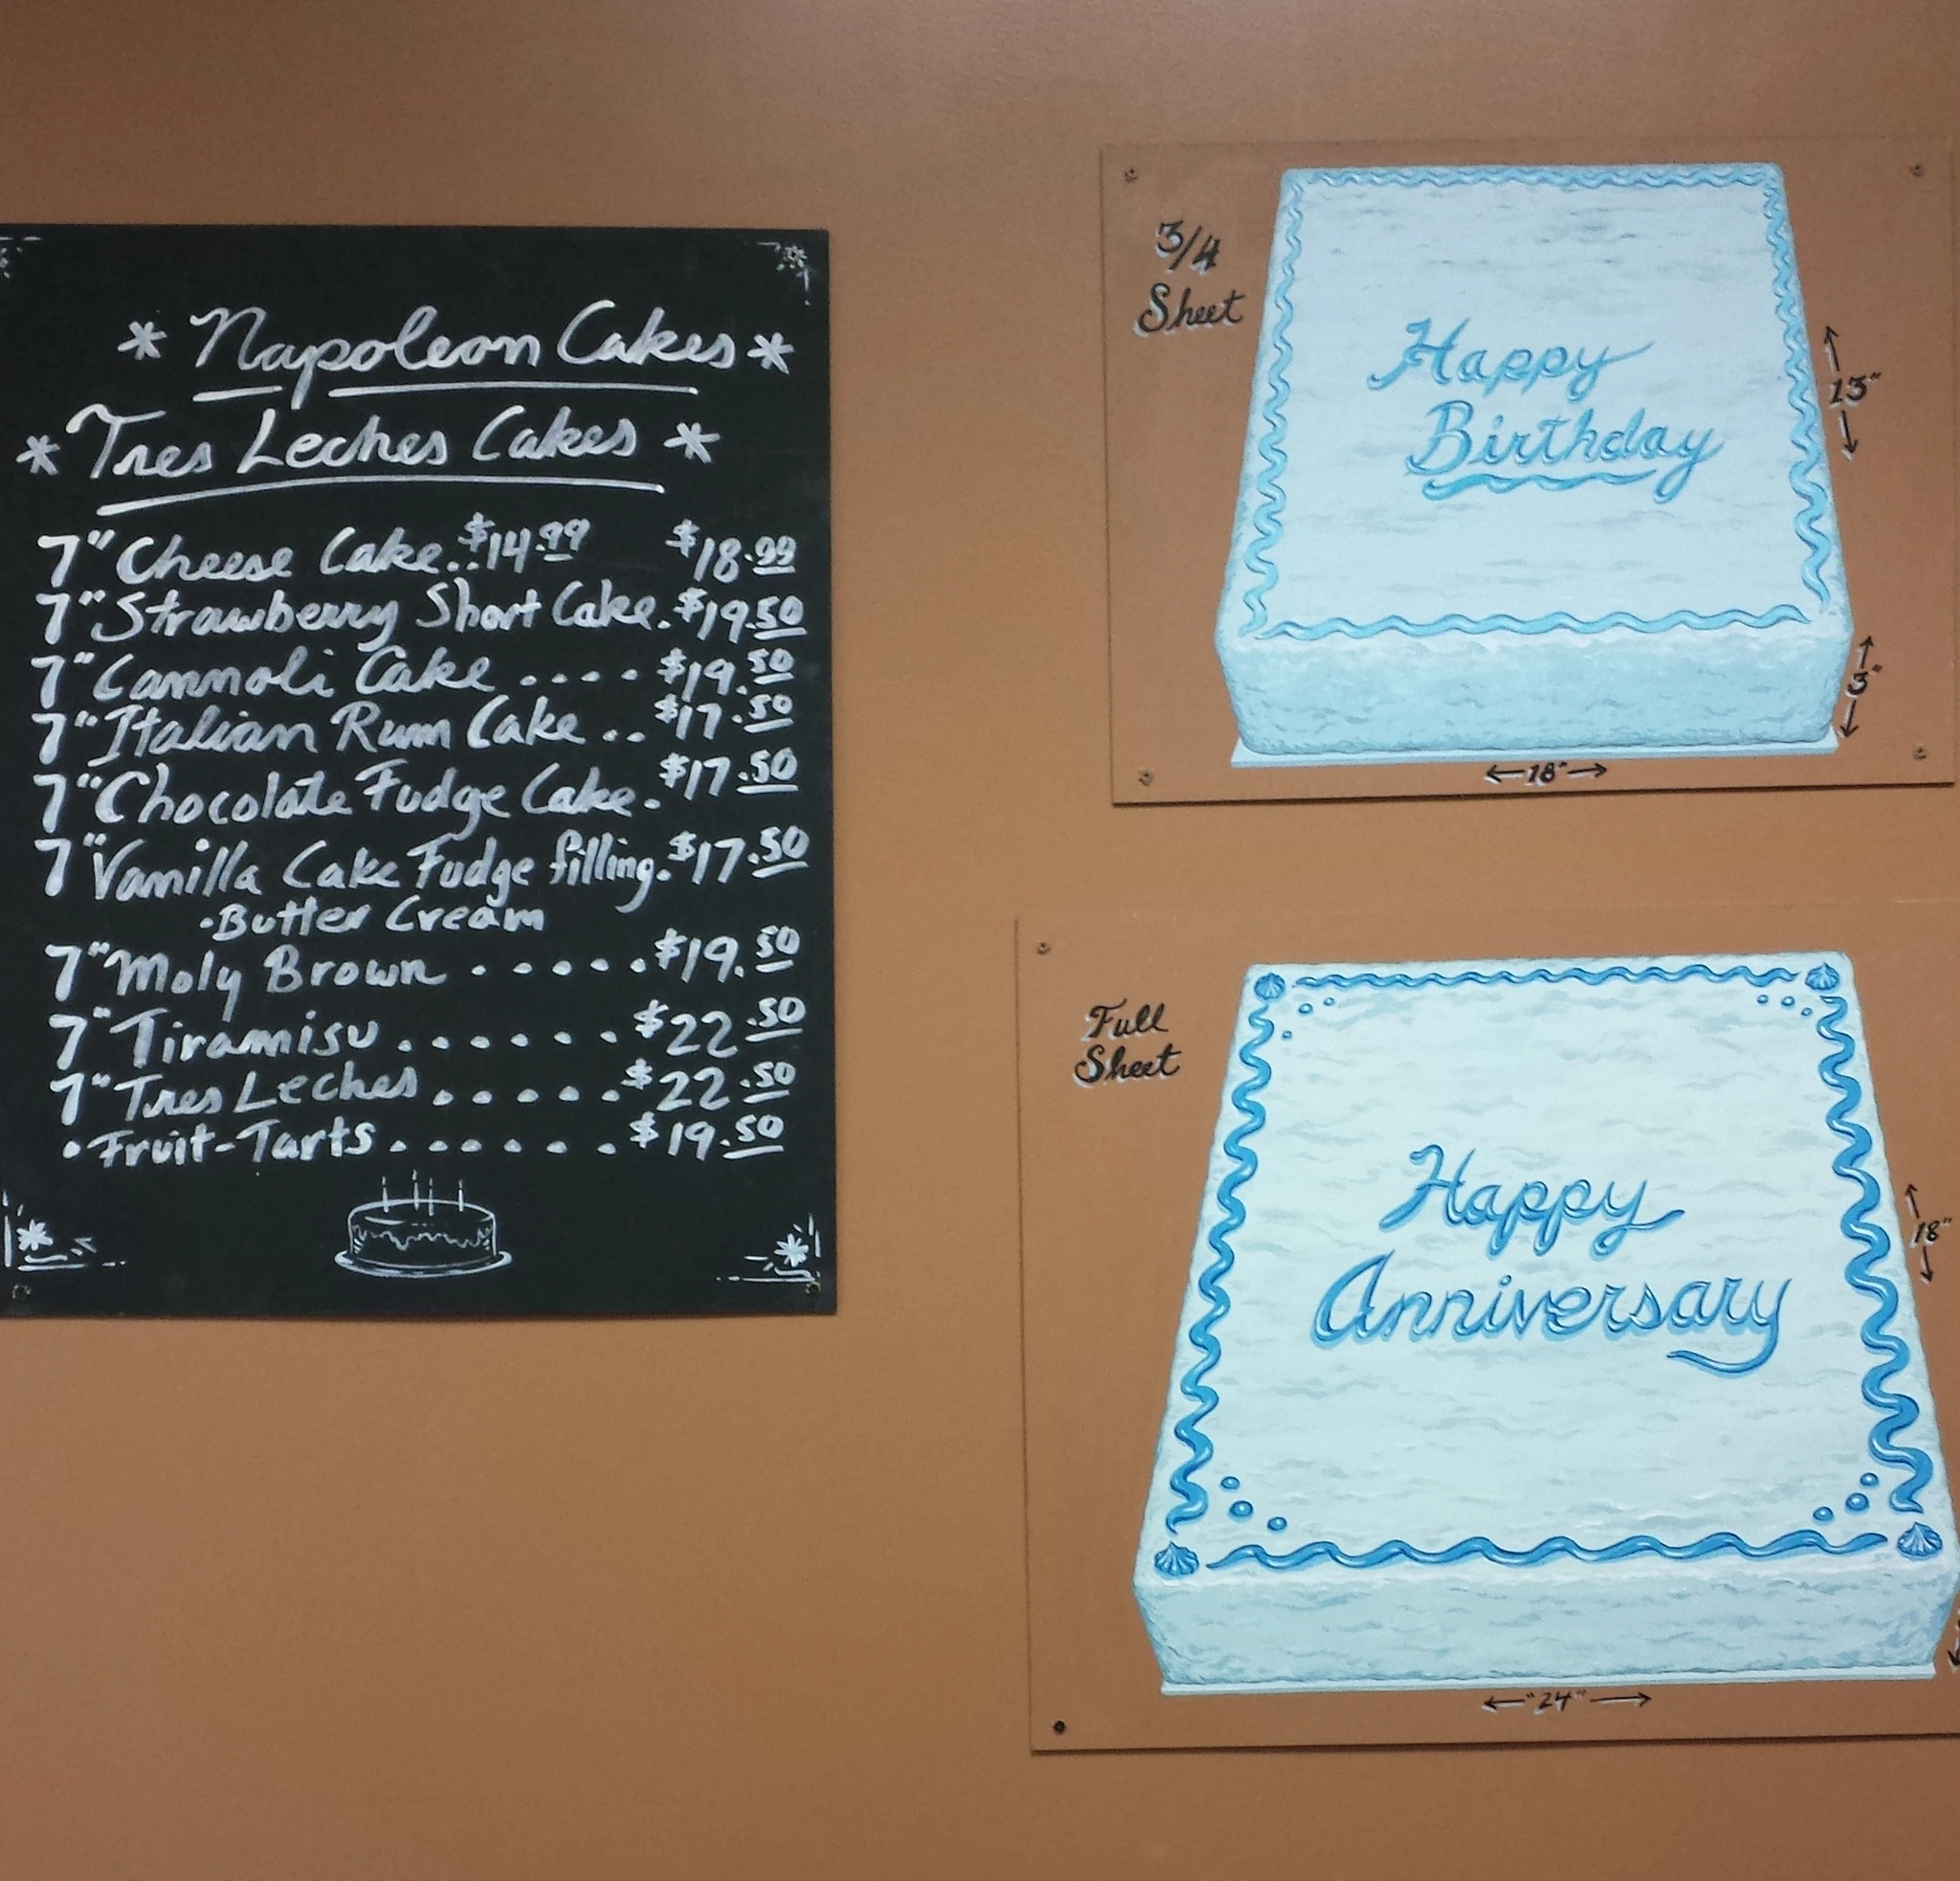 * Napoleon Cakes *
* Tres Leches Cakes *
7" Cheese Cake..$14.99 $18.99
7" Strawberry Short Cake.$19.50
7" Cannoli Cake ....$19.50
7" Italian Rum Cake ..$17.50
7" Chocolate Fudge Cake.$17.50
7" Vanilla Cake Fudge filling.$17.50
•Butter Cream
7" Moly Brown .....$19.50
7" Tiramisu ......$22.50
7" Tres Leches .....$22.50
•Fruit-Tarts ......$19.50
3/4
Sheet
Happy
Birthday
13"
3"
18"
Full
Sheet
Happy
Anniversary
18"
"24"